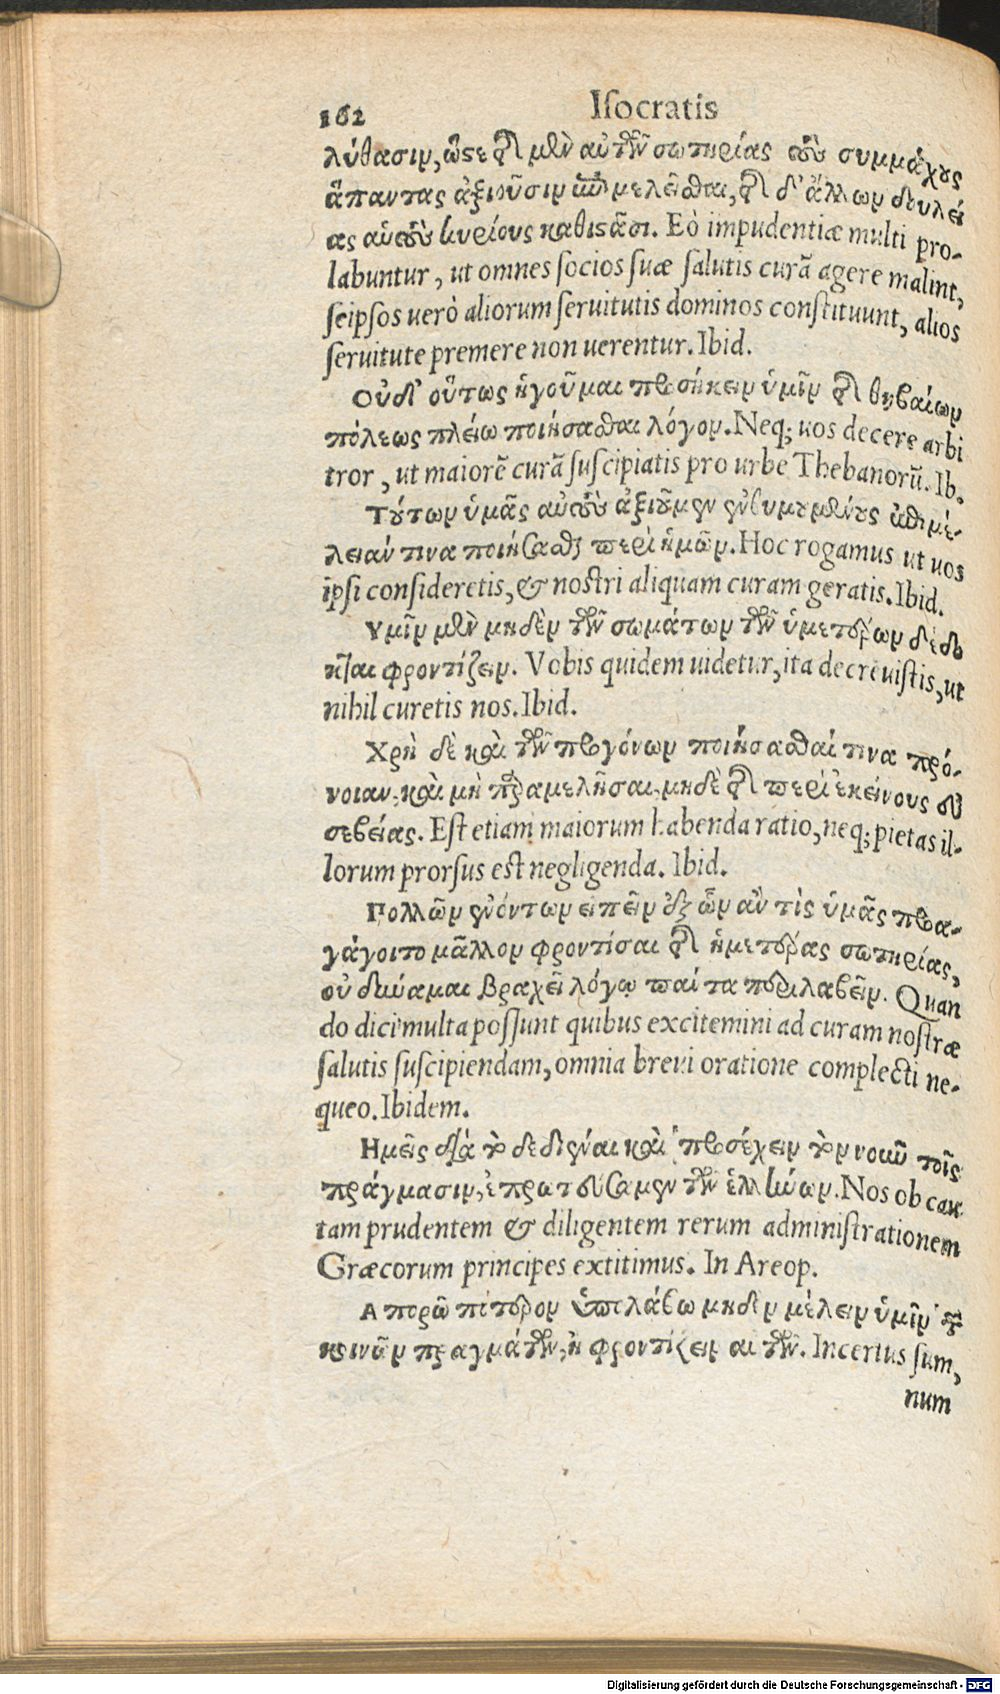 162 Isocratis
λύθασιν, ὥστε τῆς μὲν αὑτῶν σωτηρίας τοὺς συμμάχους
ἅπαντας ἀξιοῦσιν ἐπιμελεῖσθαι, τῆς δ' ἄλλων δουλεί
ας αὑτοὺς κυρίους καθιστᾶσι. Eò impudentiæ multi pro-
labuntur, ut omnes socios suæ salutis curã agere malint,
seipsos uerò aliorum seruitutis dominos constituunt, alios
seruitute premere non uerentur. Ibid.
Οὐδ' οὕτως ἡγοῦμαι προσήκειν ὑμῖν τῆς θηβαίων
πόλεως πλείω ποιήσασθαι λόγον. Neq; uos decere arbi
tror, ut maiorẽ curã suscipiatis pro urbe Thebanorũ. Ib.
Τούτων ὑμᾶς αὐτοὺς ἀξιοῦμεν ἐνθυμουμένους ἐπιμέ-
λειάν τινα ποιήσασθαι περὶ ἡμῶν. Hoc rogamus ut uos
ipsi consideretis, & nostri aliquam curam geratis. Ibid.
Υμῖν μὲν μηδὲν τῶν σωμάτων τῶν ὑμετέρων δέδο
κται φροντίζειν. Vobis quidem uidetur, ita decreuistis, ut
nihil curetis nos. Ibid.
Χρὴ δὲ καὶ τῶν προγόνων ποιήσασθαί τινα πρό-
νοιαν, καὶ μὴ παραμελῆσαι, μηδὲ τῆς περὶ ἐκείνους εὐ
σεβείας. Est etiam maiorum habenda ratio, neq; pietas il-
lorum prorsus est negligenda. Ibid.
Πολλῶν ἐνόντων εἰπεῖν ἐξ ὧν ἄν τὶς ὑμᾶς προα-
γάγοιτο μᾶλλον φροντίσαι τῆς ἡμετέρας σωτηρίας,
οὐ δύναμαι βραχεῖ λόγῳ πάντα περιλαβεῖν. Quan
do dici multa possunt quibus excitemini ad curam nostræ
salutis suscipiendam, omnia breui oratione complecti ne-
queo. Ibidem.
Ημεῖς διὰ τὸ δεδιέναι καὶ προσέχειν τὸν νοῦν τοῖς
πράγμασιν, ἐπρωτεύσαμεν τῶν ἑλλήνων. Nos ob cau
tam prudentem & diligentem rerum administrationem
Græcorum principes extitimus. In Areop.
Απορῶ πότερον ὑπολάβω μηδὲν μέλειν ὑμῖν τῶν
κοινῶν πραγμάτων, ἢ φροντίζειν αὐτῶν. Incertus sum,
num
Digitalisierung gefördert durch die Deutsche Forschungsgemeinschaft - DFG